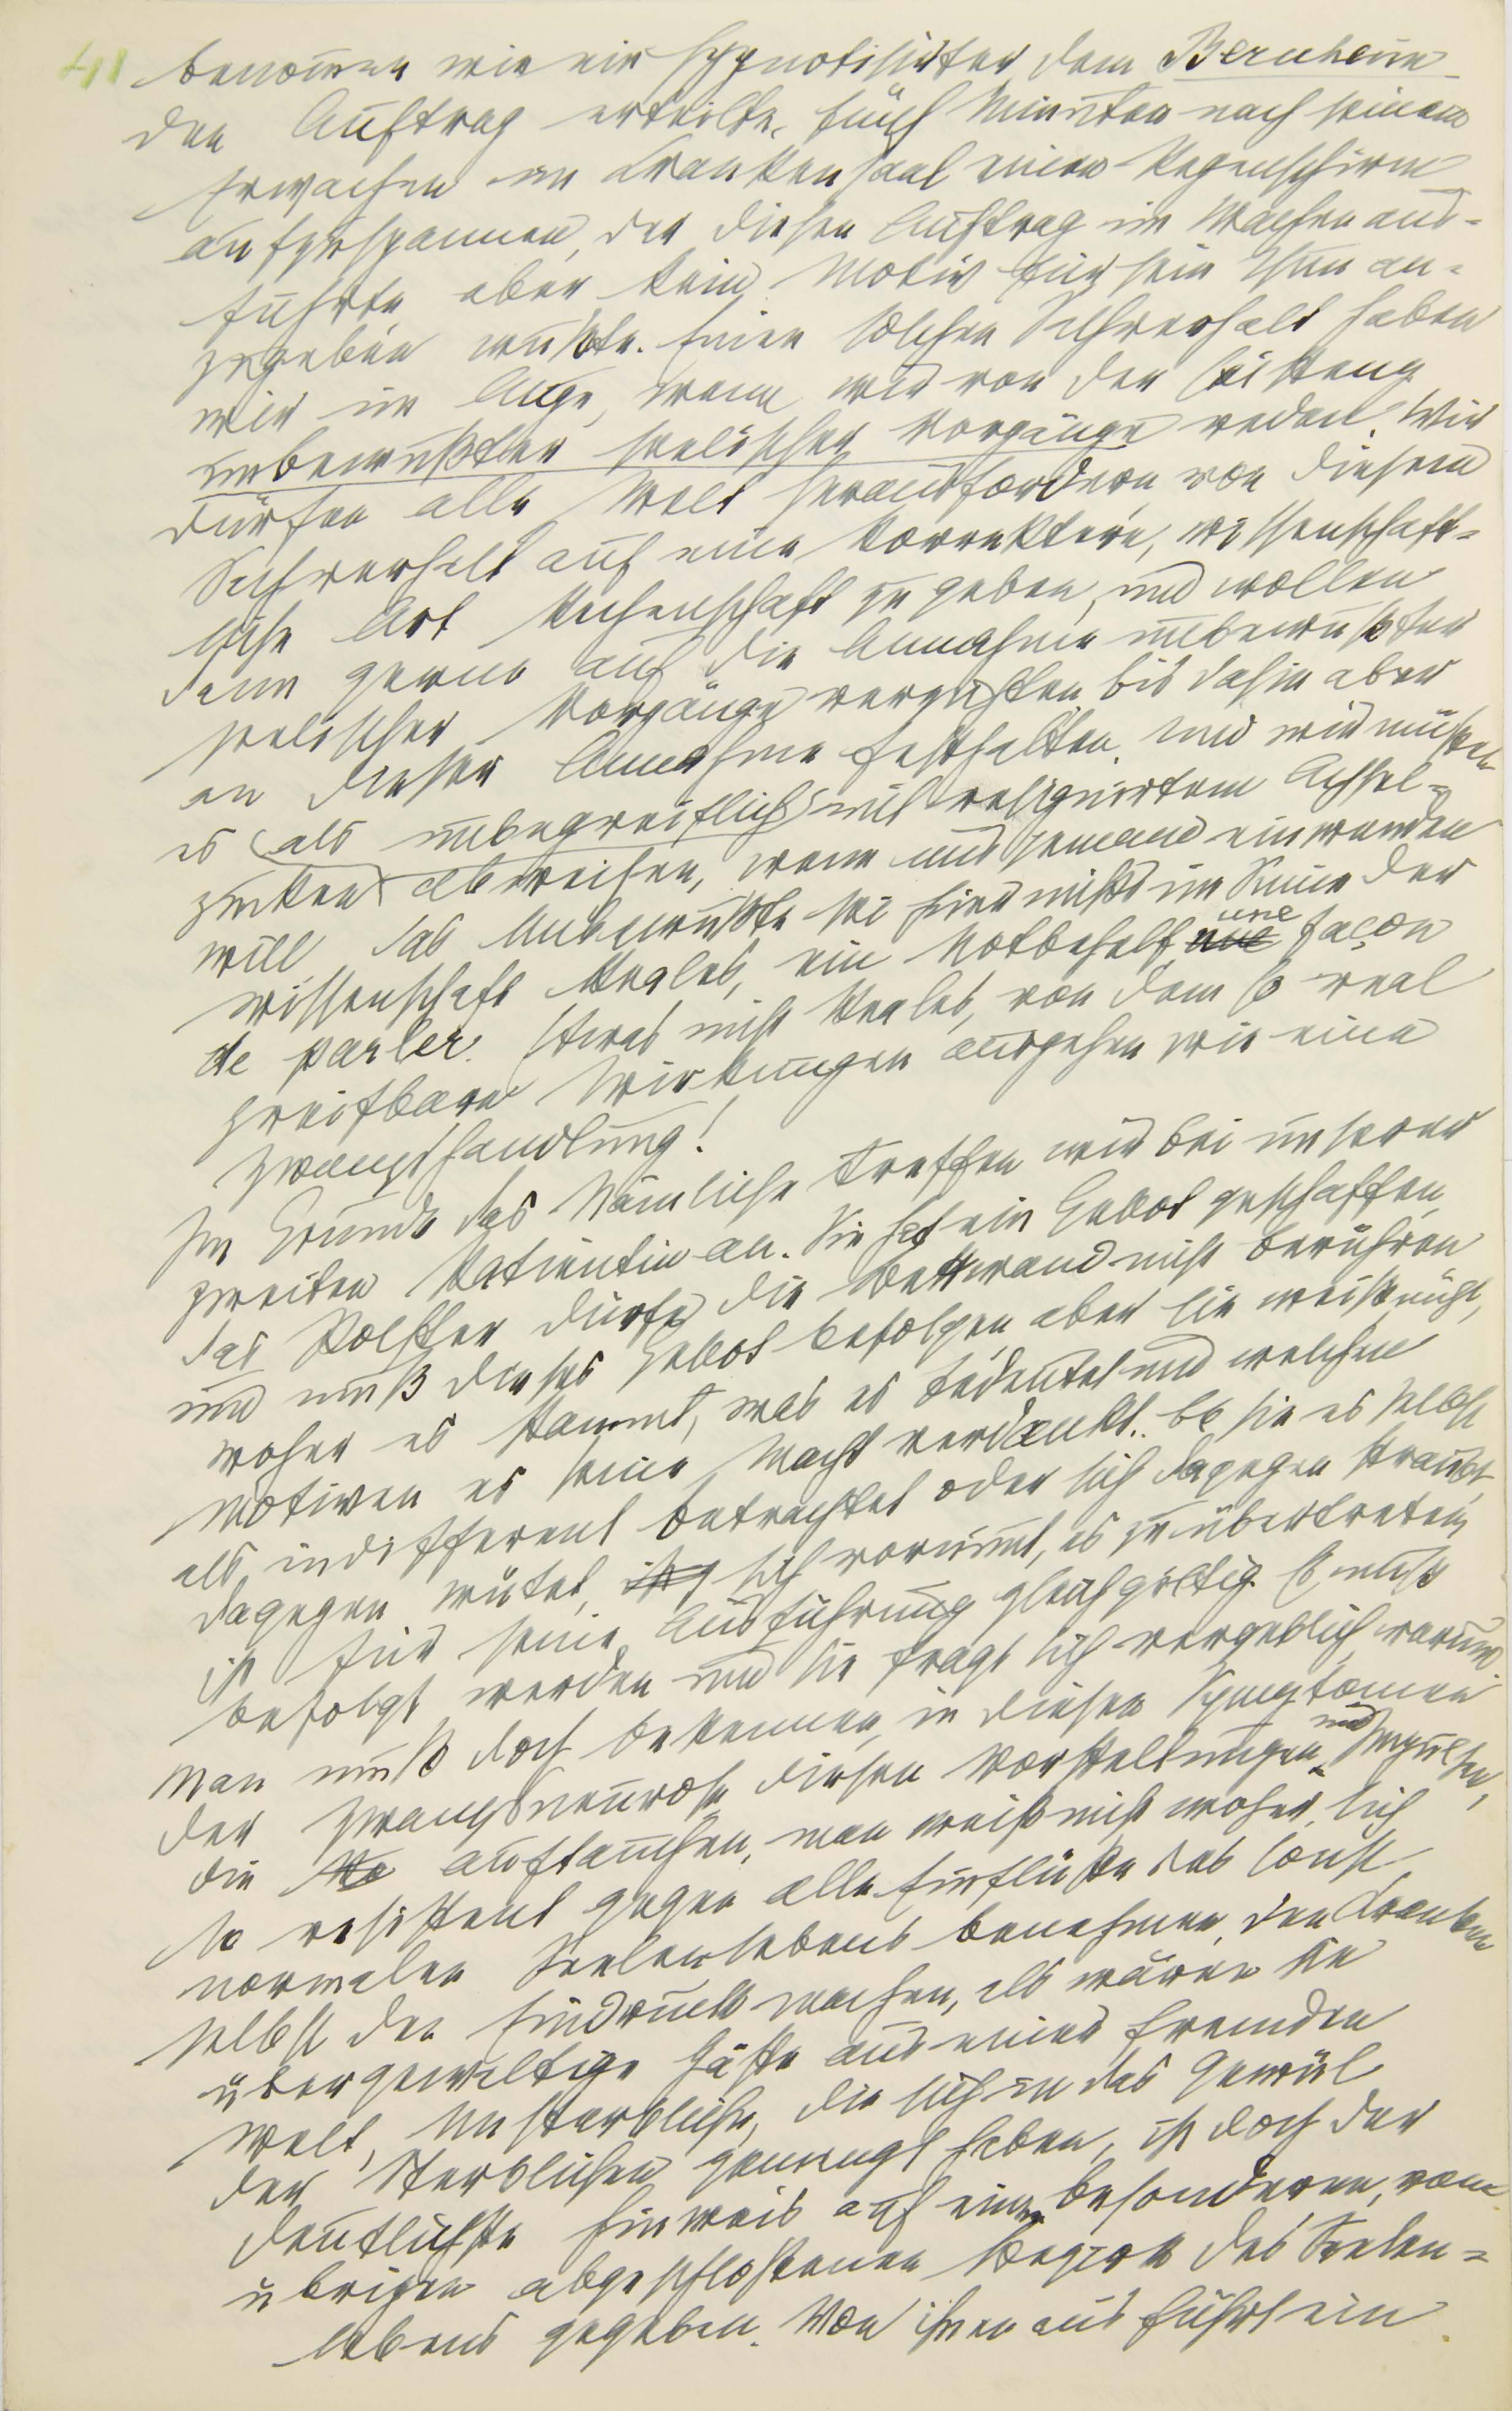 41
benommen wie ein Hypnotisirter, dem Bernheim
den Auftrag erteilte, fünf Minuten nach seinem
Erwachen im Krankensaal einen Regenschirm
aufzuspannen, der diesen Auftrag im Wachen aus-
führte, aber kein Motiv für sein Thun an-
zugeben wußte. Einen solchen Sachverhalt haben
wir im Auge, wenn wir von der Existenz
unbewußter seelischer Vorgänge reden. Wir
dürfen alle Welt herausfordern, von diesem
Sachverhalt auf eine korrektere, wissenschaft-
liche Art Rechenschaft zu geben, und wollen
dann gerne auf die Annahme unbewußter
seelischer Vorgänge verzichten, bis dahin aber
an dieser Annahme festhalten, und wir müssen
es (als unbegreiflich) mit resignirtem Achsel-
zucken abweisen, wenn uns jemand einwenden
will, das Unbewußte sei hier nichts im Sinne der
Wissenschaft Reales, ein Notbehelf, une façon
de parler. Etwas nicht Reales, von dem so real
greifbare Wirkungen ausgehen wie eine
Zwangshandlung!
Im Grunde das Nämliche treffen wir bei unserer
zweiten Patientin an. Sie hat ein Gebot geschaffen,
das Polster dürfe die Bettwand nicht berühren
und muß dieses Gebot befolgen, aber sie weiß nicht,
woher es stammt, was es bedeutet und welchen
Motiven es seine Macht verdankt. Ob sie es selbst
als indifferent betrachtet oder sich dagegen sträubt,
dagegen wütet, sich vornimmt, es zu übertreten,
ist für seine Ausführung gleichgiltig. Es muß
befolgt werden und sie fragt sich vergeblich, warum.
Man muß doch bekennen, in diesen Symptomen
der Zwangsneurose, diesen Vorstellungen und Impulsen,
die auftauchen, man weiß nicht woher, sich
so resistent gegen alle Einflüsse des sonst
normalen Seelenlebens benehmen, den Kranken
selbst den Eindruck machen, als wären sie
übergewaltige Gäste aus einer fremden
Welt, Unsterbliche, die sich in das Gewül
der Sterblichen gemengt haben, ist doch der
deutlichste Hinweis auf einen besonderen, vom
übrigen abgeschlossenen Bezirk des Seelen-
lebens gegeben. Von ihnen aus führt ein